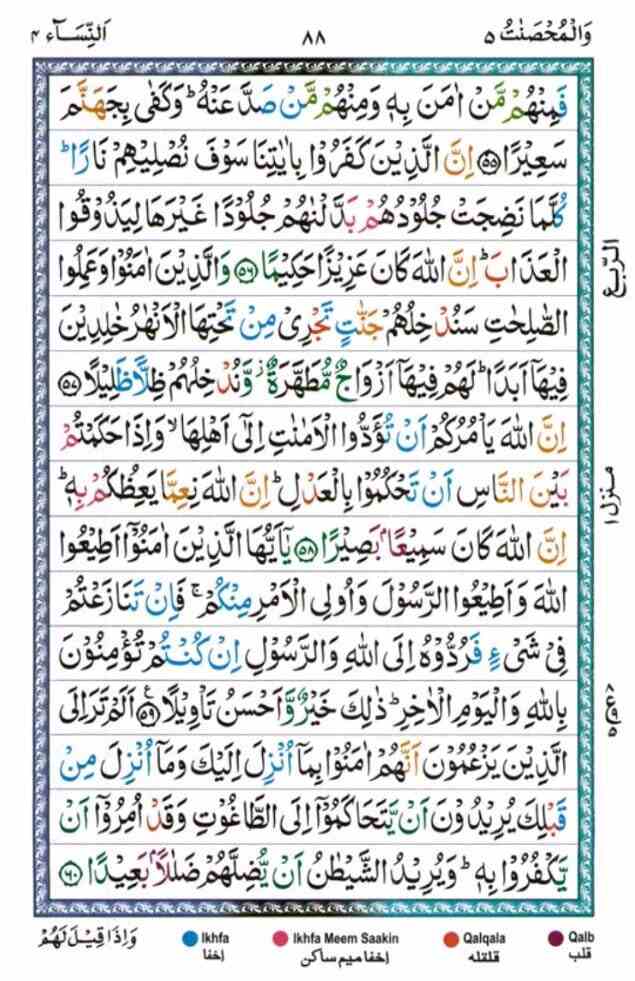 وَالْمُحْصَنٰتُ ۵
۸۸
اَلنِّسَآء ۴
فَمِنْهُمْ مَّنْ اٰمَنَ بِهٖ وَمِنْهُمْ مَّنْ صَدَّ عَنْهُ ؕ وَكَفٰى بِجَهَنَّمَ
سَعِيْرًا ﴿۵۵﴾ اِنَّ الَّذِيْنَ كَفَرُوْا بِاٰيٰتِنَا سَوْفَ نُصْلِيْهِمْ نَارًا ؕ
كُلَّمَا نَضِجَتْ جُلُوْدُهُمْ بَدَّلْنٰهُمْ جُلُوْدًا غَيْرَهَا لِيَذُوْقُوا
الْعَذَابَ ؕ اِنَّ اللّٰهَ كَانَ عَزِيْزًا حَكِيْمًا ﴿۵۶﴾ وَالَّذِيْنَ اٰمَنُوْا وَعَمِلُوا
الصّٰلِحٰتِ سَنُدْخِلُهُمْ جَنّٰتٍ تَجْرِىْ مِنْ تَحْتِهَا الْاَنْهٰرُ خٰلِدِيْنَ
فِيْهَاۤ اَبَدًا ؕ لَهُمْ فِيْهَاۤ اَزْوَاجٌ مُّطَهَّرَةٌ ؗ وَّنُدْخِلُهُمْ ظِلًّا ظَلِيْلًا ﴿۵۷﴾
اِنَّ اللّٰهَ يَاْمُرُكُمْ اَنْ تُؤَدُّوا الْاَمٰنٰتِ اِلٰٓى اَهْلِهَا ۙ وَاِذَا حَكَمْتُمْ
بَيْنَ النَّاسِ اَنْ تَحْكُمُوْا بِالْعَدْلِ ؕ اِنَّ اللّٰهَ نِعِمَّا يَعِظُكُمْ بِهٖ ؕ
اِنَّ اللّٰهَ كَانَ سَمِيْعًۢا بَصِيْرًا ﴿۵۸﴾ يٰۤاَيُّهَا الَّذِيْنَ اٰمَنُوْۤا اَطِيْعُوا
اللّٰهَ وَاَطِيْعُوا الرَّسُوْلَ وَاُولِى الْاَمْرِ مِنْكُمْ ۚ فَاِنْ تَنَازَعْتُمْ
فِىْ شَىْءٍ فَرُدُّوْهُ اِلَى اللّٰهِ وَالرَّسُوْلِ اِنْ كُنْتُمْ تُؤْمِنُوْنَ
بِاللّٰهِ وَالْيَوْمِ الْاٰخِرِ ؕ ذٰلِكَ خَيْرٌ وَّاَحْسَنُ تَاْوِيْلًا ﴿۵۹﴾ اَلَمْ تَرَ اِلَى
الَّذِيْنَ يَزْعُمُوْنَ اَنَّهُمْ اٰمَنُوْا بِمَاۤ اُنْزِلَ اِلَيْكَ وَمَاۤ اُنْزِلَ مِنْ
قَبْلِكَ يُرِيْدُوْنَ اَنْ يَّتَحَاكَمُوْۤا اِلَى الطَّاغُوْتِ وَقَدْ اُمِرُوْۤا اَنْ
يَّكْفُرُوْا بِهٖ ؕ وَيُرِيْدُ الشَّيْطٰنُ اَنْ يُّضِلَّهُمْ ضَلٰلًۢا بَعِيْدًا ﴿۶۰﴾
الرُّبع
منزل ۱
وَاِذَا قِيْلَ لَهُمْ
Ikhfa
اِخفا
Ikhfa Meem Saakin
اِخفا میم ساکن
Qalqala
قلقله
Qalb
قلب